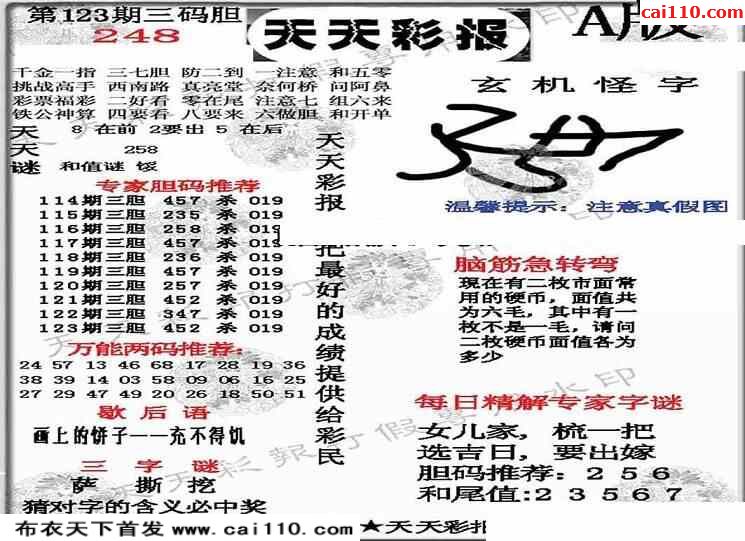 第123期三码胆
248
天天彩报
A版
cai110.com
千金一指 三七胆 防二到 一注意 和五零
挑战高手 西南路 真亮堂 奈何桥 问阿鼻
彩票福彩 二好看 零在尾 注意七 组六来
铁公神算 四要看 八要来 六做胆 和开单
天 8 在前 2要出 5 在后
天 258
谜 和值谜 馁
专家胆码推荐
114期三胆 457 杀 019
115期三胆 235 杀 019
116期三胆 258 杀 019
117期三胆 457 杀 019
118期三胆 236 杀 019
119期三胆 457 杀 019
120期三胆 257 杀 019
121期三胆 452 杀 019
122期三胆 347 杀 019
123期三胆 452 杀 019
万能两码推荐:
24 57 13 46 68 17 28 19 36
38 39 14 03 58 09 06 16 25
27 29 47 49 20 26 18 50 51
歇后语
画上的饼子——充不得饥
三字谜
萨 撕 挖
猜对字的含义必中奖
天天彩报
把最好的成绩提供给彩民
玄机怪字
温馨提示: 注意真假图
脑筋急转弯
现在有二枚市面常
用的硬币，面值共
为六毛，其中有一
枚不是一毛，请问
二枚硬币面值各为
多少
每日精解专家字谜
女儿家，梳一把
选吉日，要出嫁
胆码推荐: 2 5 6
和尾值:2 3 5 6 7
布衣天下首发 www.cai110.com ★天天彩报